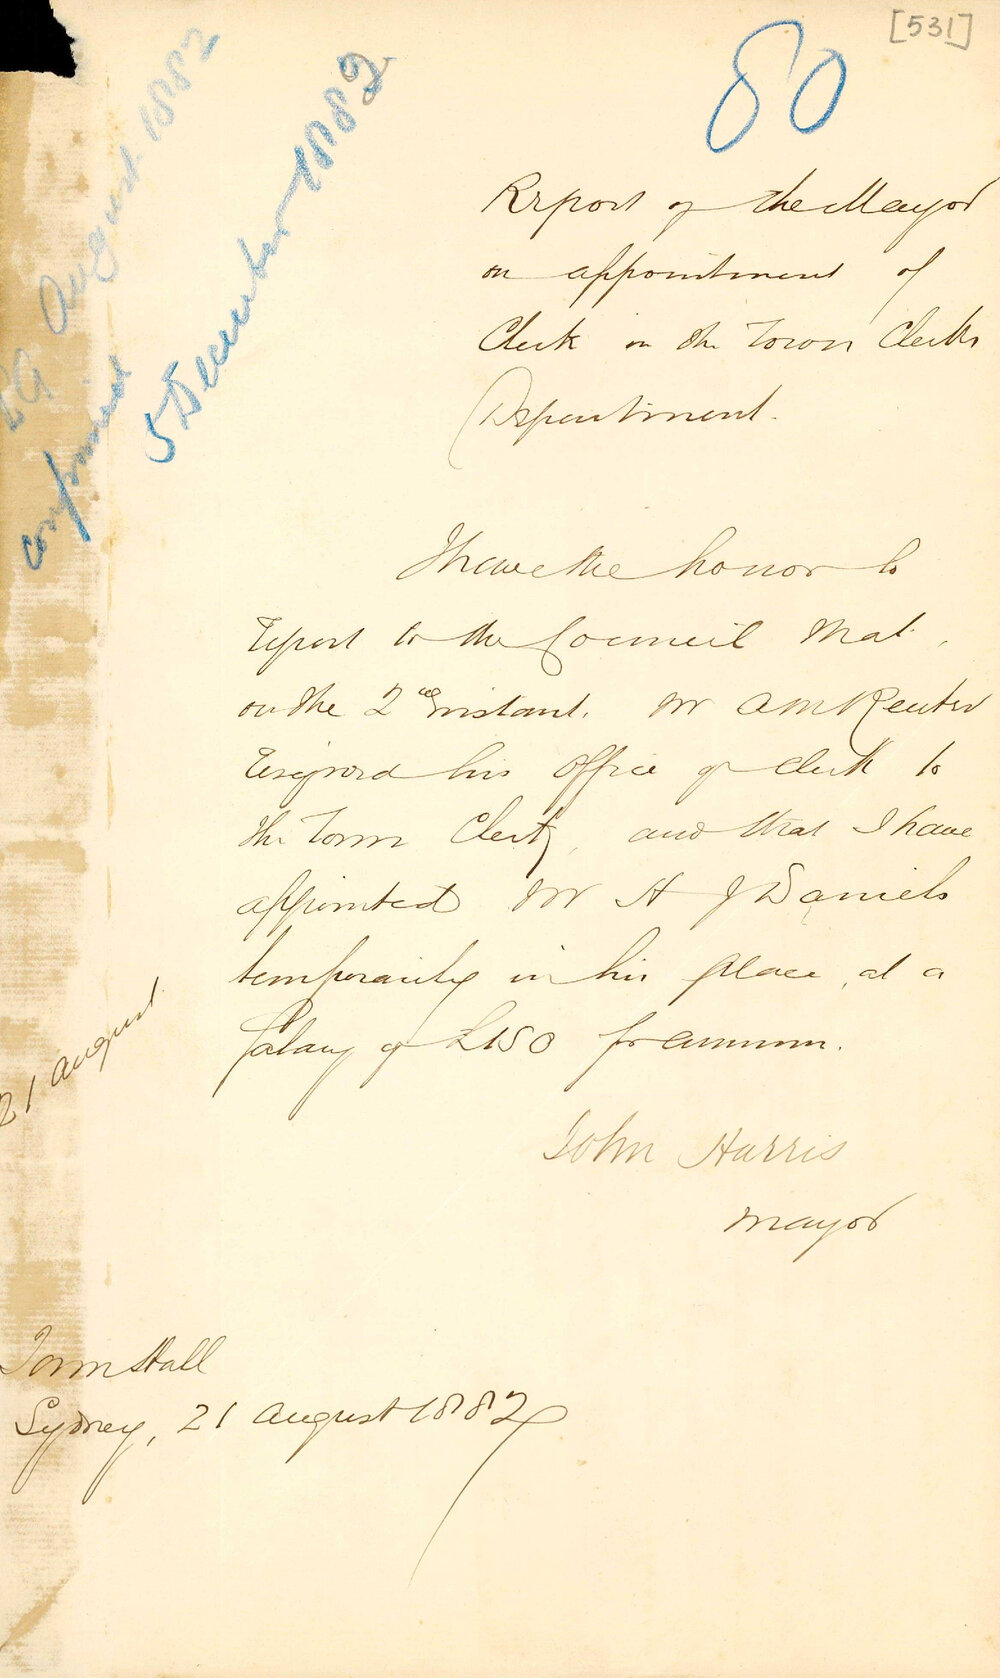 [531]
80
29 August 1882
confirmed
5 December 1882
Report of the Mayor
on appointment of
Clerk in the Town Clerks
Department.
I have the honor to
report to the Council that,
on the 2nd instant, Mr A M Reuter
resigned his office of clerk to
the Town Clerk, and that I have
appointed Mr H J Daniels
temporarily in his place, at a
salary of £150 pr annum.
21 August
John Harris
Mayor
Town Hall
Sydney, 21 August 1882